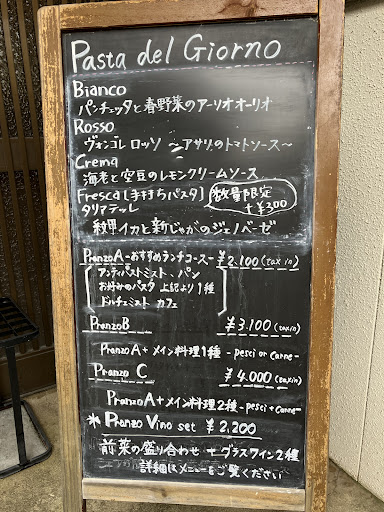 Pasta del Giorno
Bianco
パンチェッタと春野菜のアーリオオーリオ
Rosso
ヴォンゴレロッソ ～アサリのトマトソース～
Crema
海老と空豆のレモンクリームソース
Fresca[手打ちパスタ] 数量限定
タリアテッレ +¥300
イカと新じゃがのジェノベーゼ
PranzoA -おすすめランチコース- ¥2.100 (tax in)
アンティパストミスト、パン
お好みのパスタ 上記より1種
ドルチェミスト カフェ
PranzoB ¥3.100 (tax in)
PranzoA+メイン料理1種 -pesci or carne-
Pranzo C ¥4.000 (tax in)
PranzoA+メイン料理2種 -pesci+carne-
* Pranzo Vino set ¥2,200
前菜の盛り合わせ +グラスワイン2種
詳細はメニューをご覧ください